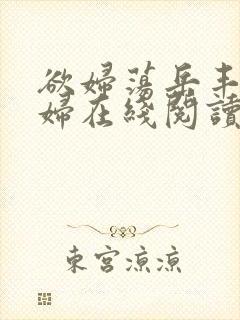 欲婦蕩岳丰
婦在綫閱讀
東宮涼涼